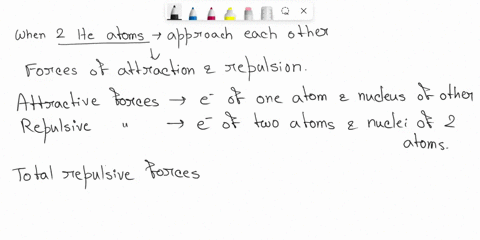 When 2 He atoms → approach each other
↓
Forces of attraction & repulsion.
Attractive forces → e⁻ of one atom & nucleus of other
Repulsive " → e⁻ of two atoms & nuclei of 2
atoms.
Total repulsive forces